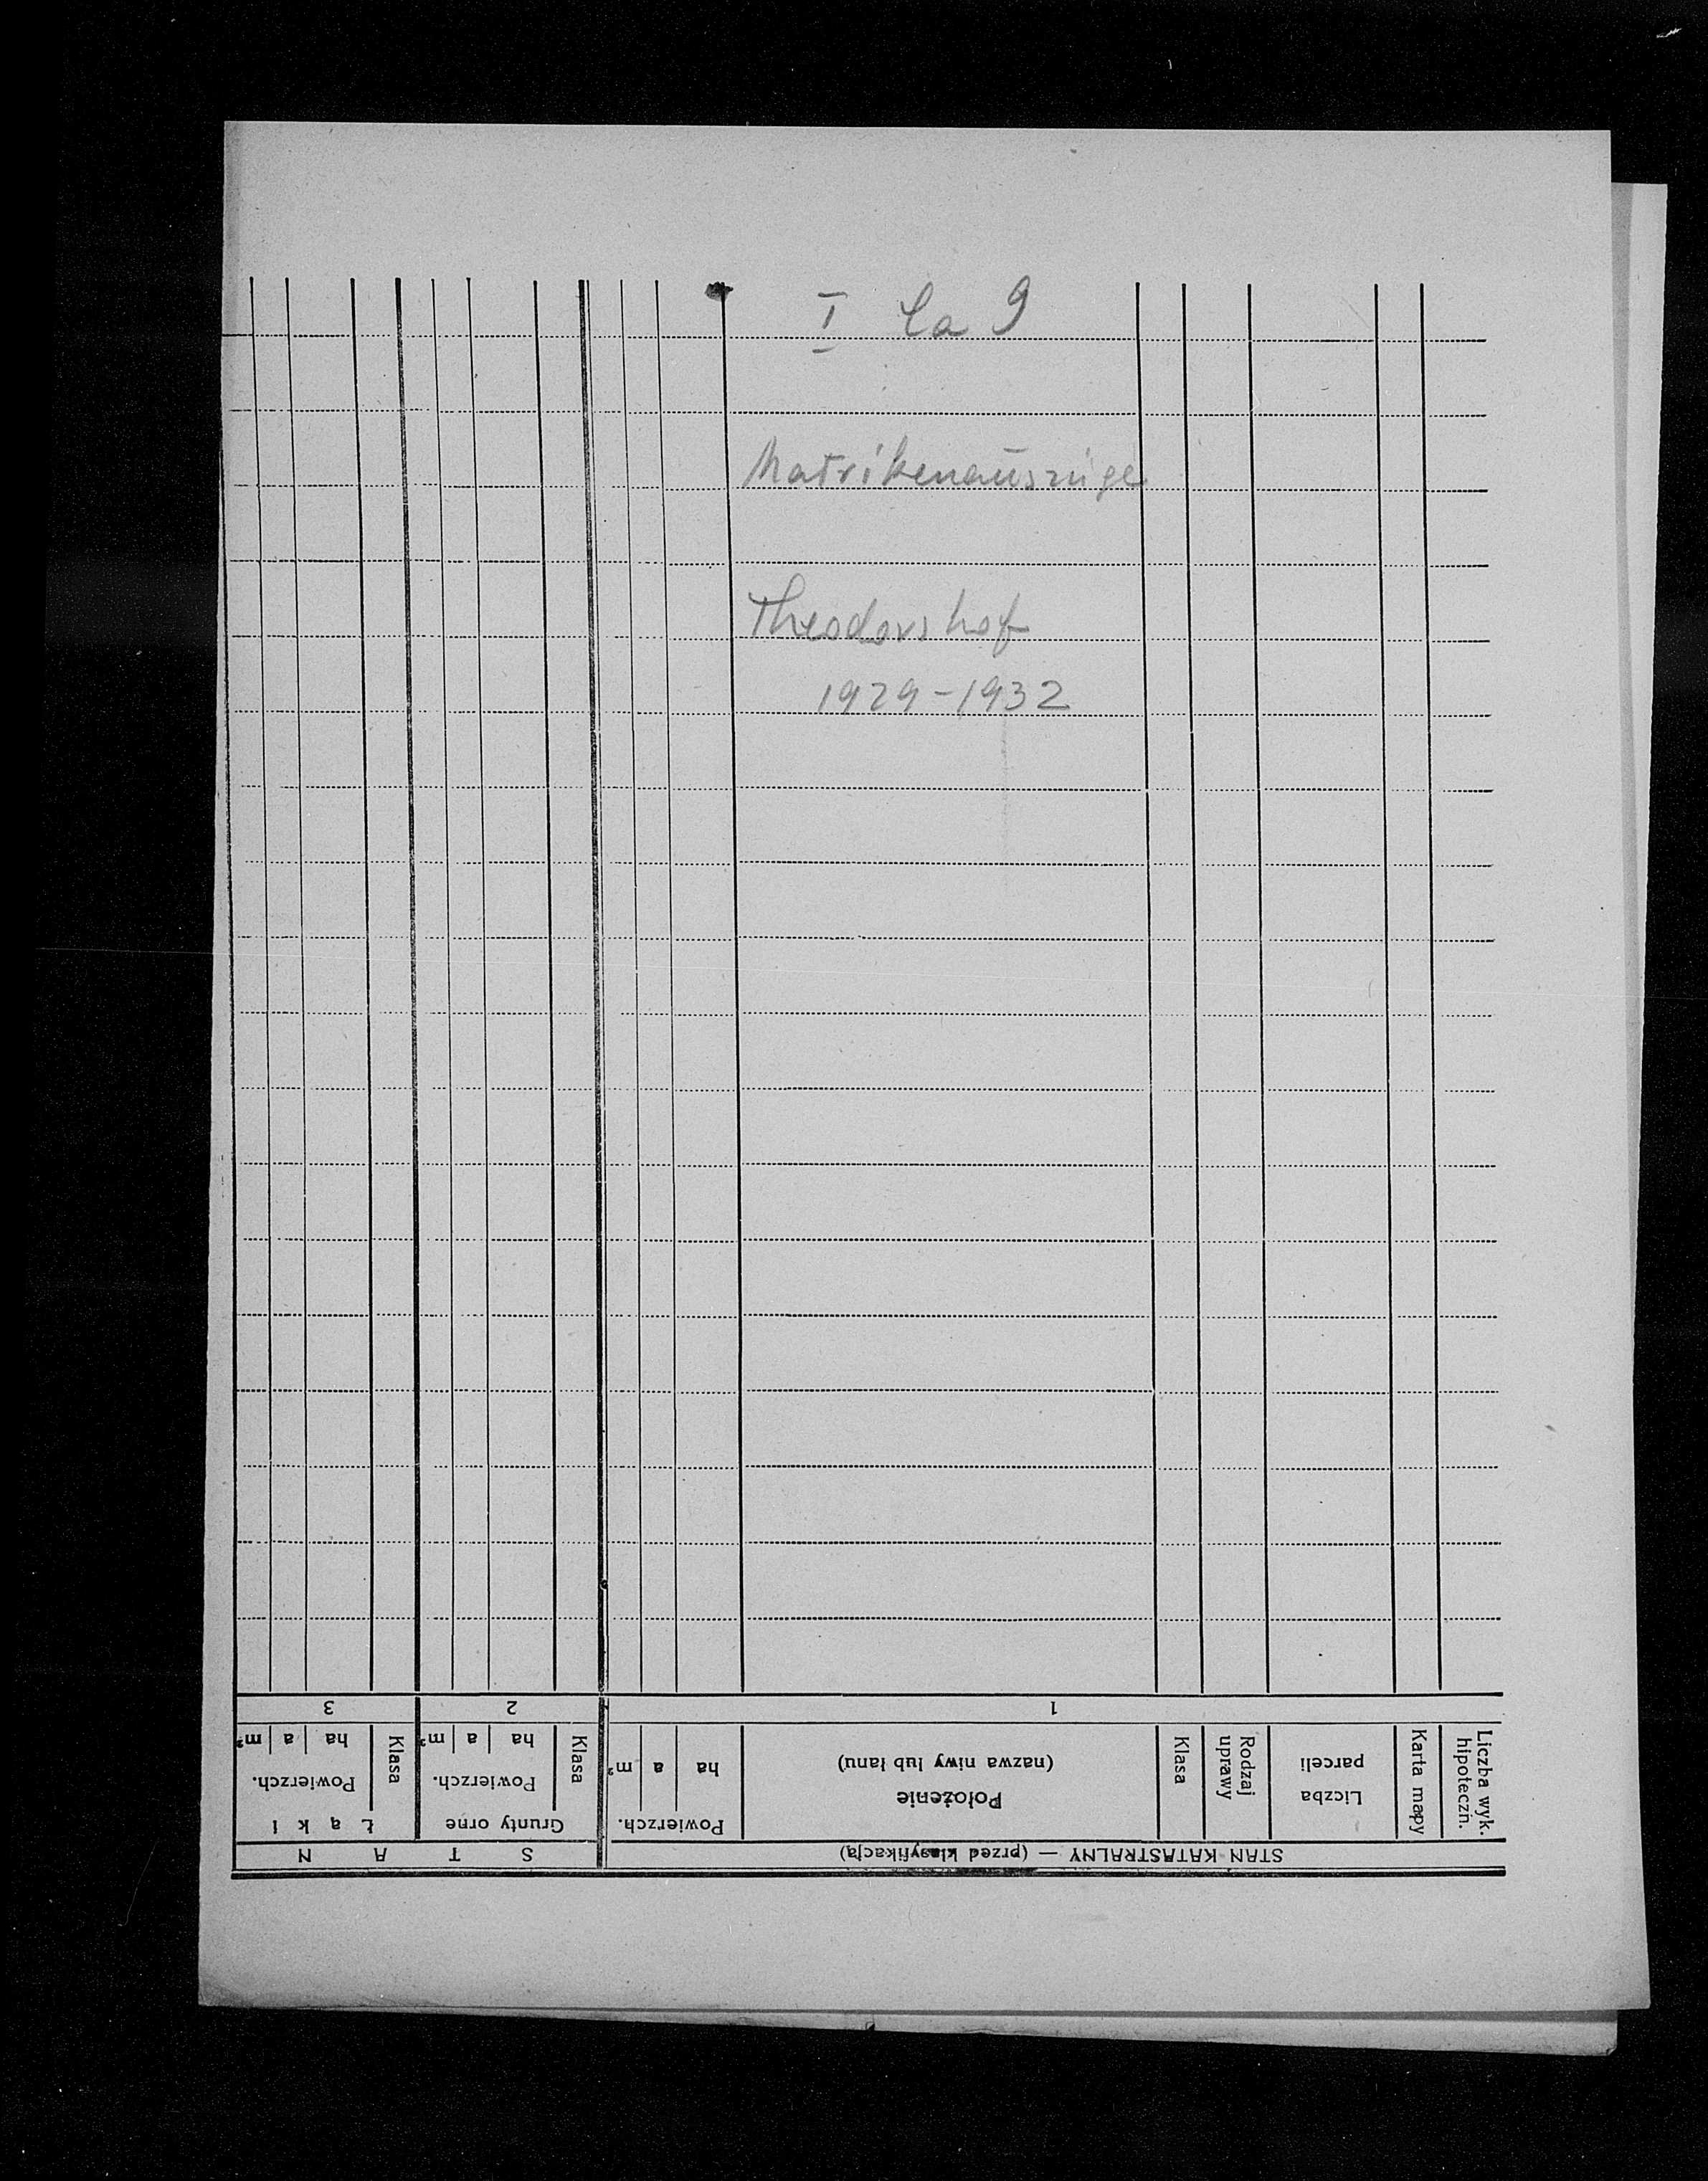 I Ca 9
Matrikenauszüge
Theodorshof
1929-1932
STAN KATASTRALNY — (przed klasyfikacją)
S T A N
Liczba wyk. hipoteczn.
Karta mapy
Liczba parceli
Rodzaj uprawy
Klasa
Położenie
(nazwa niwy lub łanu)
Powierzch.
ha a m²
Grunty orne
Klasa
Powierzch.
ha a m²
Łąki
Klasa
Powierzch.
ha a m²
1 2 3